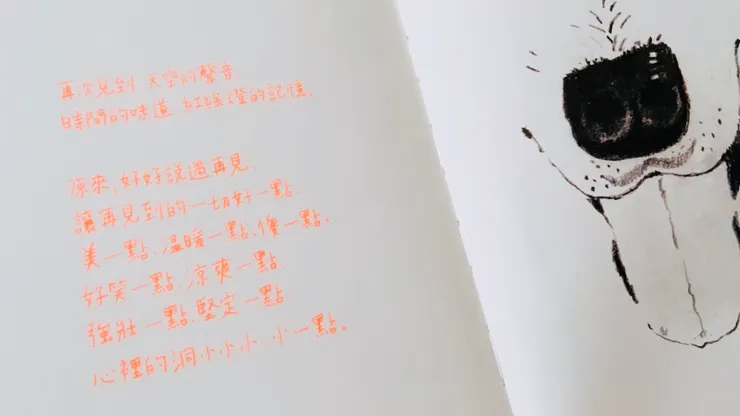 再次見到 天空的聲音
時間的味道 紅綠燈的記憶.
原來,好好說過再見,
讓再見到的一切好一點、
美一點、溫暖一點、傻一點。
好笑一點、涼爽一點、
強壯一點、堅定一點
心裡的洞小小小、小一點。